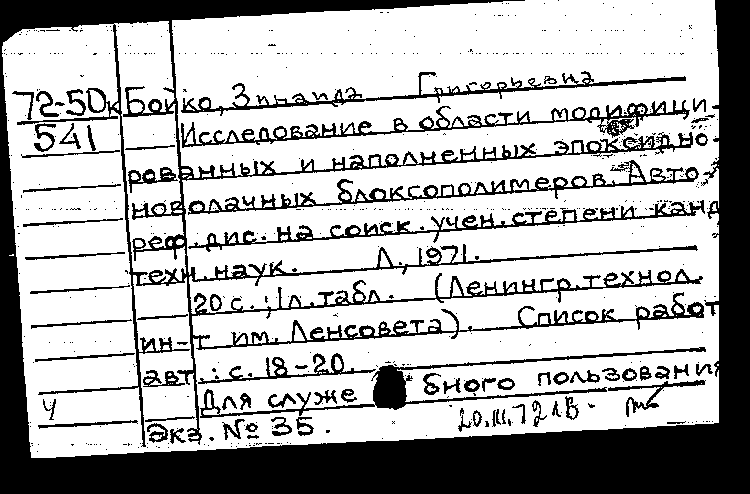 72-50к Бойко, Зинаида Григорьевна
541 Исследование в области модифици-
рованных и наполненных эпоксидно-
новолачных блоксополимеров. Авто-
реф. дис. на соиск. учен. степени канд
техн. наук. Л., 1971.
20 с.; 1 л. табл. (Ленингр. технол.
ин-т им. Ленсовета). Список работ
авт.: с. 18-20.
Для служебного пользования
Ч
Экз. № 35. 20.III.72